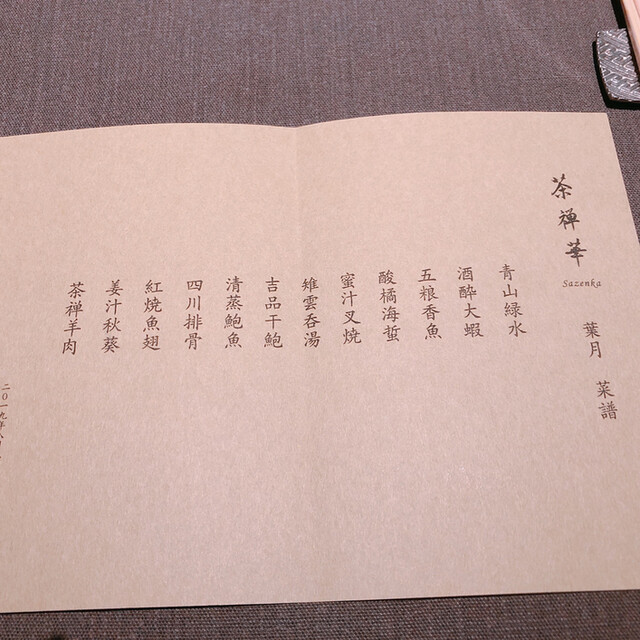 茶禅華
Sazenka
葉月 菜譜
青山緑水
酒醉大蝦
五粮香魚
酸橘海蜇
蜜汁叉焼
雉雲呑湯
吉品干鮑
清蒸鮑魚
四川排骨
紅焼魚翅
姜汁秋葵
茶禅羊肉
二〇一九年八月